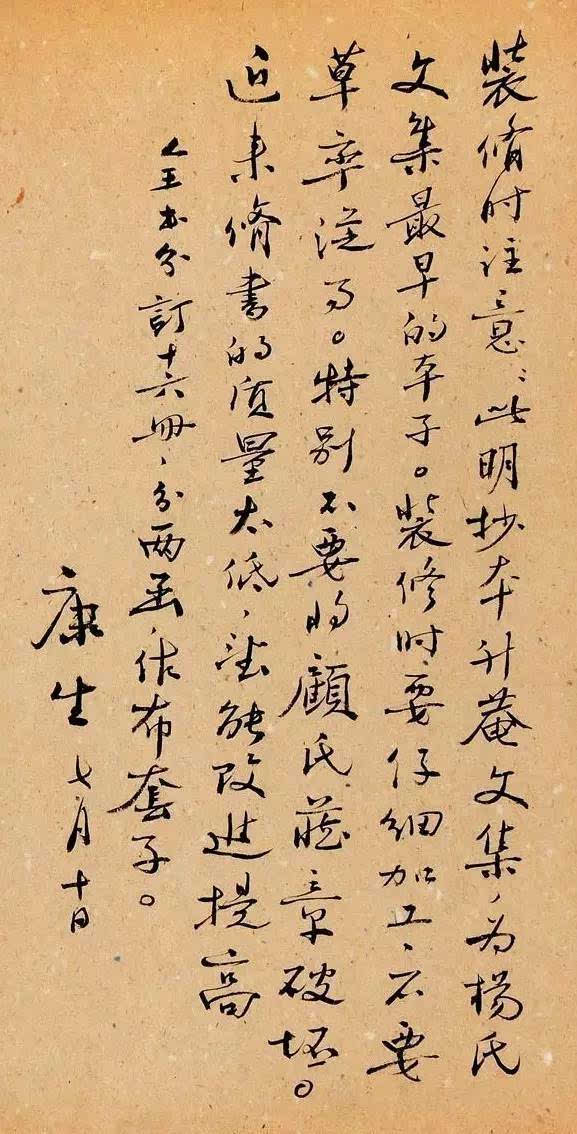 装脩时注意：此明抄本升菴文集，为楊氏
文集最早的本子。装修时要仔细加工、不要
草率從事。特别不要将顧氏藏章破坏。
近来脩书的质量太低，望能改进提高
全书分訂十六册、分两函，作布套子。
康生 七月十日